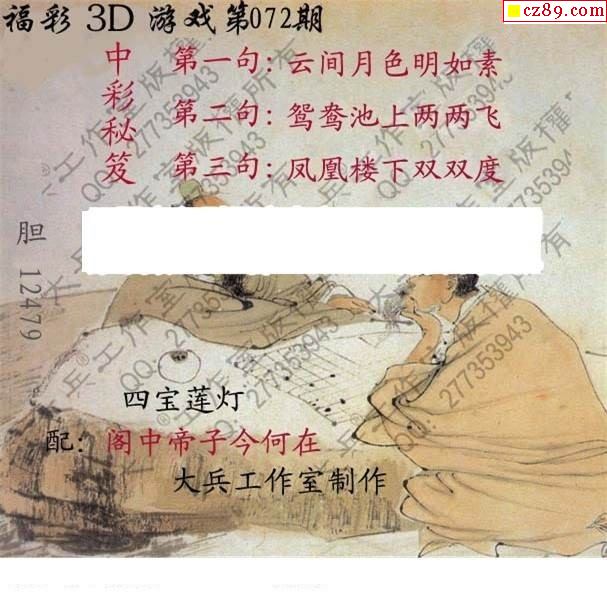 福彩 3D 游戏 第072期
cz89.com
中彩秘笈
第一句：云间月色明如素
第二句：鸳鸯池上两两飞
第三句：凤凰楼下双双度
胆 12479
四宝莲灯
配：阁中帝子今何在
大兵工作室制作
大兵®工作室版權所有
QQ：277353943